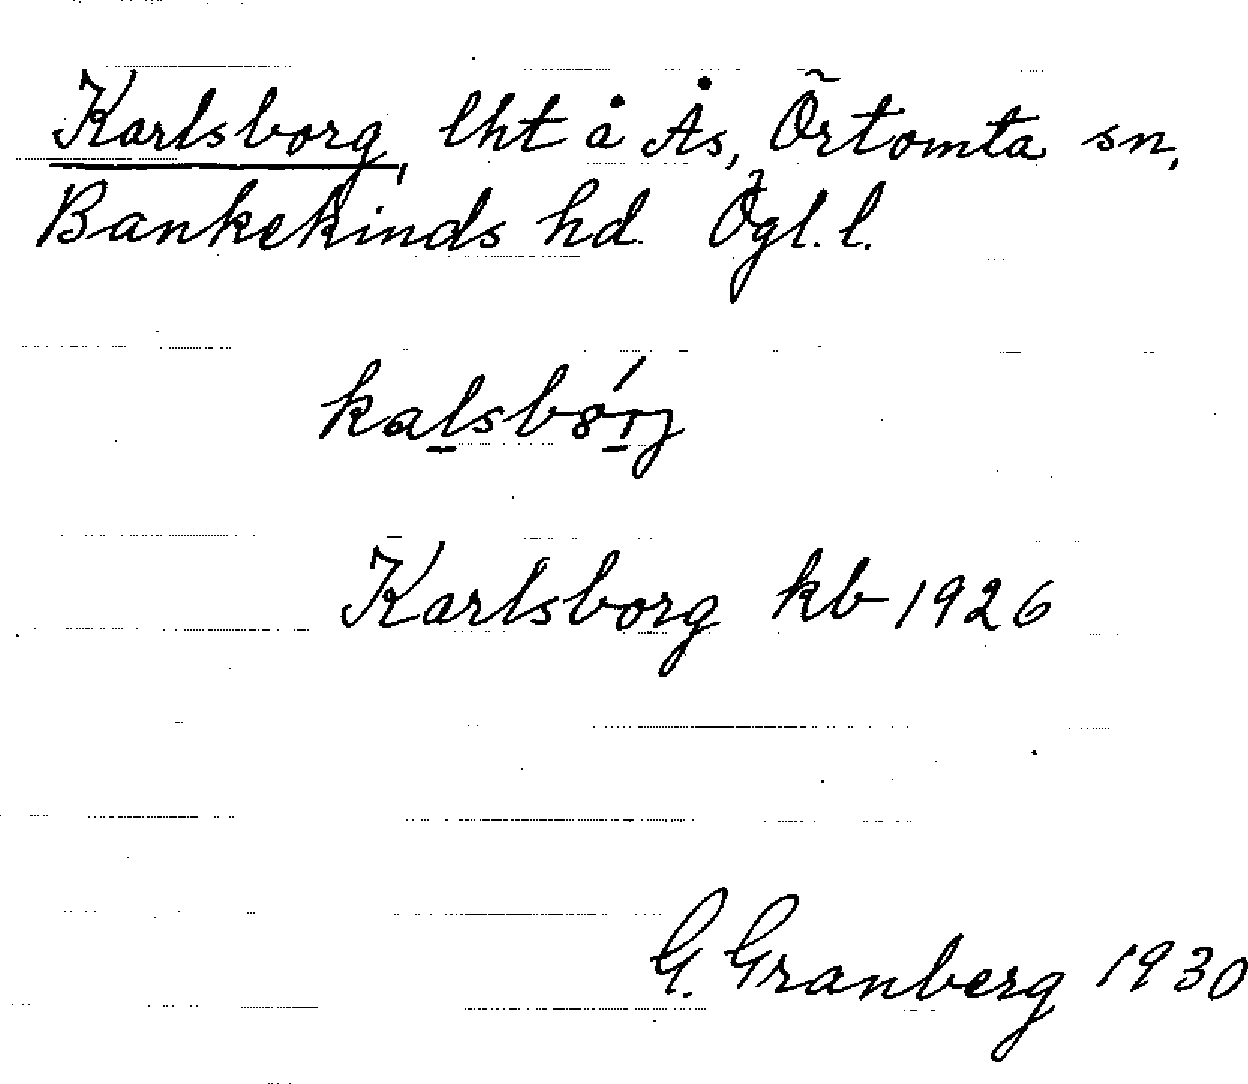 Karlsborg, lht å Ås, Örtomta sn,
Bankekinds hd. Ögl. l.
Karlsborg kb 1926
G. Granberg 1930